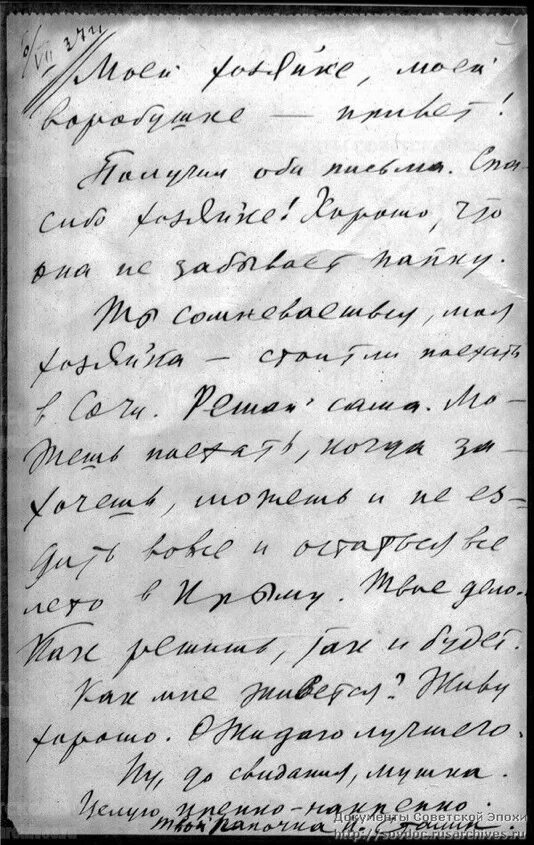 Моей хозяйке, моей
воробушке — привет!
Получил оба письма. Спа-
сибо хозяйке! Хорошо, что
она не забывает папку.
Ты сомневаешься, моя
хозяйка — стоит ли поехать
в Сочи. Решай сама. Мо-
жешь поехать, когда за-
хочешь, можешь и не ез-
дить вовсе и остаться все
лето в Крыму. Твое дело.
Как решишь, так и будет.
Как мне живется? Живу
хорошо. Ожидаю лучшего.
Ну, до свидания, мушка.
Целую крепко-накрепко.
Твой папочка И. Сталин
Документы Советской Эпохи
http://sovdoc.rusarchives.ru